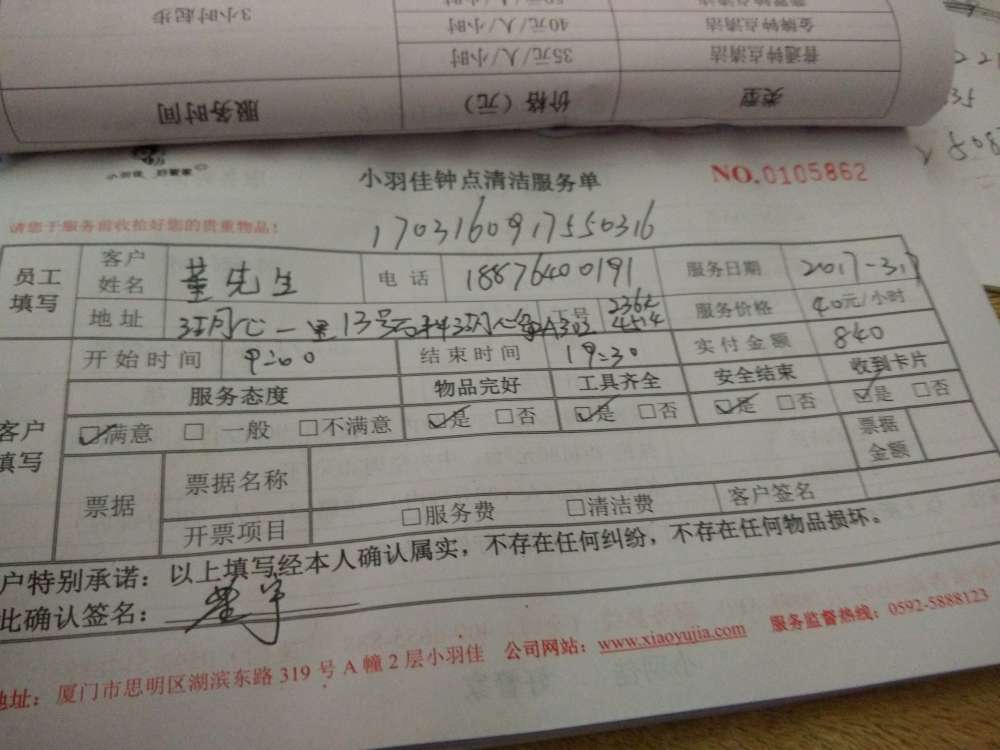 3小时起步
金牌钟点清洁 40元/人/小时
普通钟点清洁 35元/人/小时
类型 价格（元） 服务时间
小羽佳 好管家
小羽佳钟点清洁服务单 NO.0105862
请您于服务前收拾好您的贵重物品！
1703160917550316
员工填写 客户姓名 董先生 电话 18876400191 服务日期 2017-3.17
地址 一里13号 服务价格 40元/小时
开始时间 9:00 结束时间 19:30 实付金额 840
客户填写 服务态度 物品完好 工具齐全 安全结束 收到卡片
☑满意 □一般 □不满意 ☑是 □否 ☑是 □否 ☑是 □否 ☑是 □否
票据 票据名称 票据金额
开票项目 □服务费 □清洁费 客户签名
户特别承诺：以上填写经本人确认属实，不存在任何纠纷，不存在任何物品损坏。
此确认签名：
地址：厦门市思明区湖滨东路319号A幢2层小羽佳 公司网站：www.xiaoyujia.com 服务监督热线：0592-5888123